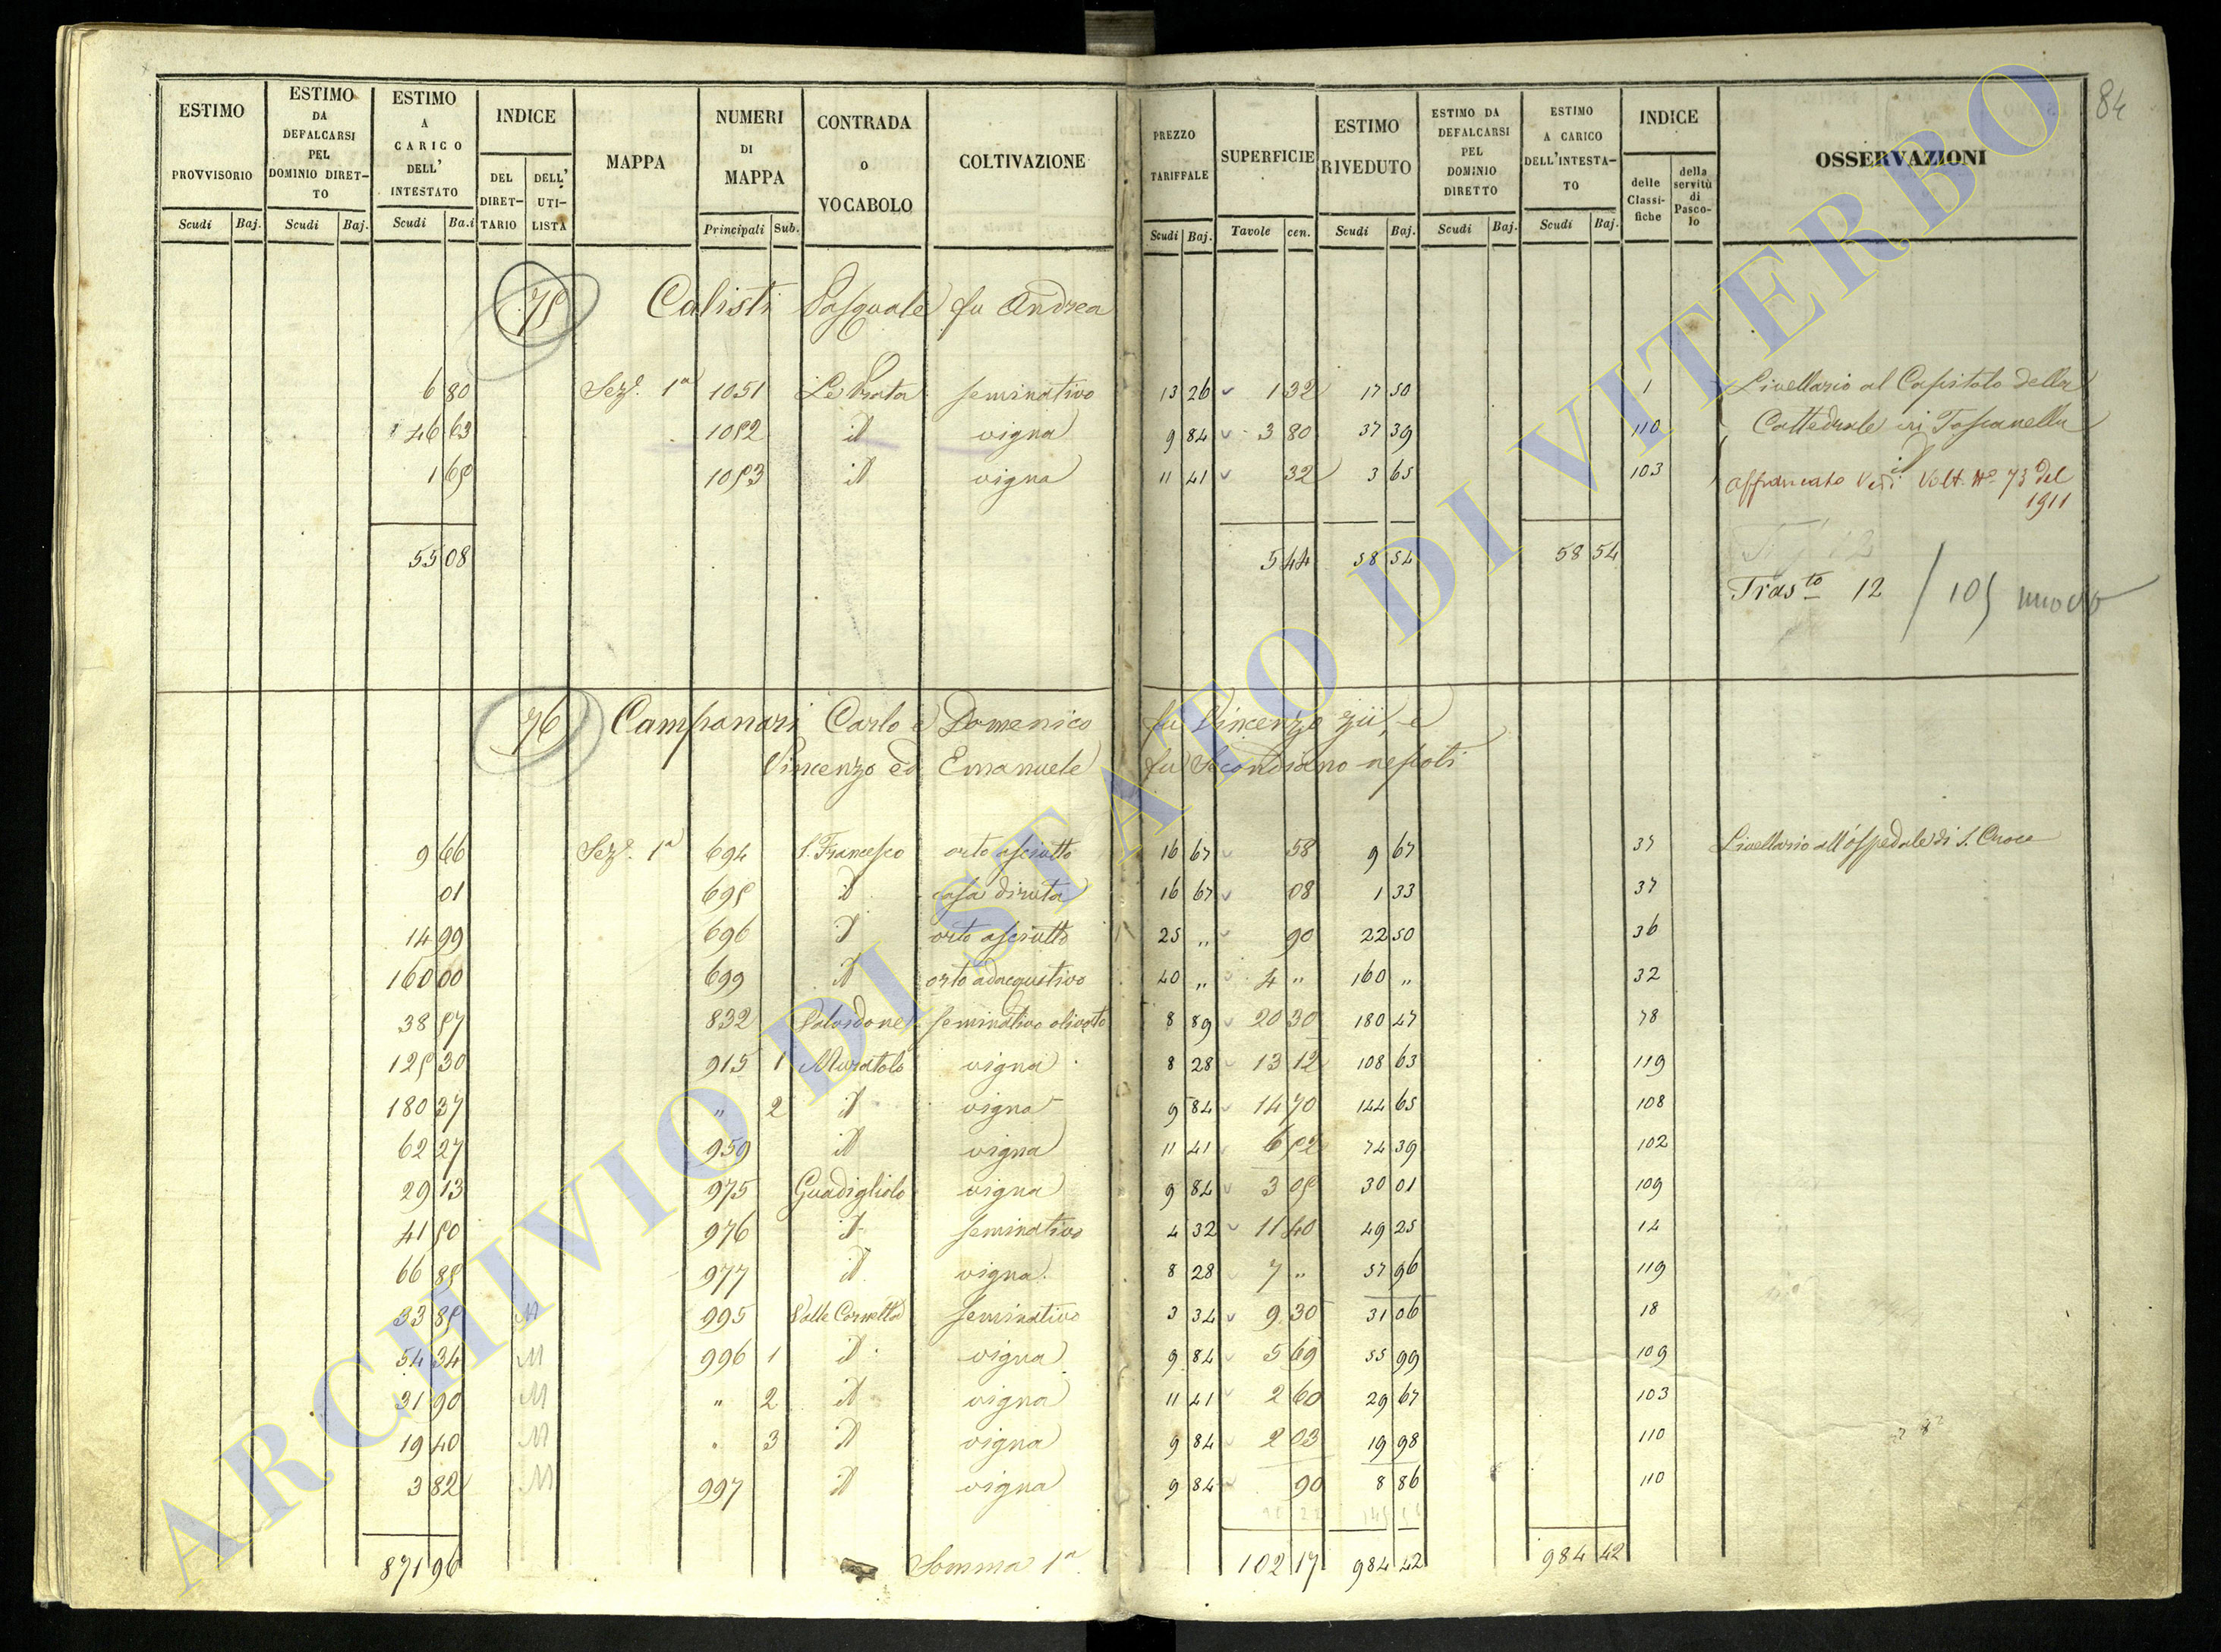 84
ESTIMO PROVVISORIO Scudi Baj.
ESTIMO DA DEFALCARSI PEL DOMINIO DIRET-TO Scudi Baj.
ESTIMO A CARICO DELL' INTESTATO Scudi Ba.i
INDICE DEL DIRET-TARIO DELL' UTI-LISTA
MAPPA
NUMERI DI MAPPA Principali Sub.
CONTRADA o VOCABOLO
COLTIVAZIONE
PREZZO TARIFFALE Scudi Baj.
SUPERFICIE Tavole cen.
ESTIMO RIVEDUTO Scudi Baj.
ESTIMO DA DEFALCARSI PEL DOMINIO DIRETTO Scudi Baj.
ESTIMO A CARICO DELL'INTESTA-TO Scudi Baj.
INDICE delle Classi-fiche della servitù di Pasco-lo
OSSERVAZIONI
75 Calisti Pasquale fu Andrea
6 80 Sez.e 1a 1051 Le Prata seminativo 13 26 1 32 17 50 1 Livellario al Capitolo della
46 63 1052 id vigna 9 84 3 80 37 39 110 Cattedrale in Toscanella
1 65 1053 id vigna 11 41 32 3 65 103 id
affrancato Vedi Volt. No 73 del
1911
55 08 5 44 58 54 58 54
Trasto 12 / 105 nuovo
76 Campanari Carlo e Domenico fu Vincenzo zii, e
Vincenzo ed Emanuele fu Secondiano nepoti
9 66 Sez.e 1a 694 S. Francesco orto asciutto 16 67 58 9 67 37 Livellario all'ospedale di S. Croce
01 695 id casa diruta 16 67 08 1 33 37
14 99 696 id orto asciutto 25 " 90 22 50 36
160 00 699 id orto adacquativo 40 " 4 " 160 " 32
38 57 832 seminativo olivato 8 89 20 30 180 47 78
125 30 915 1 Muratolo vigna 8 28 13 12 108 63 119
180 37 " 2 id vigna 9 84 14 70 144 65 108
62 27 959 id vigna 11 41 6 52 74 39 102
29 13 975 Guadigliolo vigna 9 84 3 05 30 01 109
41 50 976 id seminativo 4 32 11 40 49 25 14
66 85 977 id vigna 8 28 7 " 57 96 119
33 85 M 995 Valle Cornetta seminativo 3 34 9 30 31 06 18
54 34 M 996 1 id vigna 9 84 5 69 55 99 109
31 90 M " 2 id vigna 11 41 2 60 29 67 103
19 40 M " 3 id vigna 9 84 2 03 19 98 110
3 82 M 997 id vigna 9 84 90 8 86 110
871 96 Somma 1a 102 17 984 42 984 42
ARCHIVIO DI STATO DI VITERBO